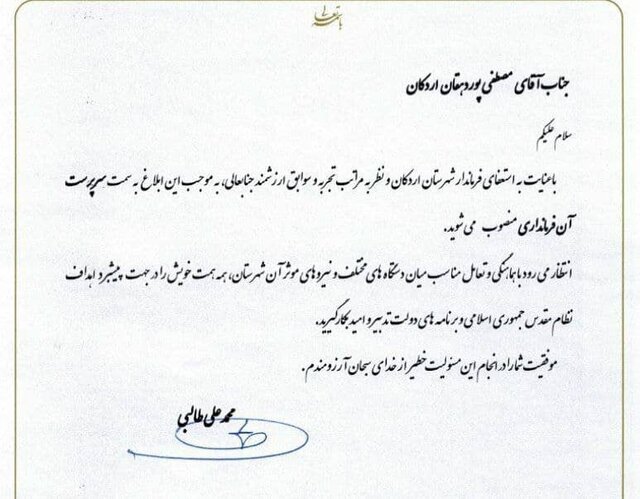 باسمه تعالی
جناب آقای مصطفی پوردهقان اردکان
سلام علیکم
باعنایت به استعفای فرماندار شهرستان اردکان و نظر به مراتب تجربه و سوابق ارزشمند جنابعالی، به موجب این ابلاغ به سمت سرپرست
آن فرمانداری منصوب می شوید.
انتظار می رود با هماهنگی و تعامل مناسب میان دستگاه های مختلف و نیروهای موثر آن شهرستان، همه همت خویش را در جهت پیشبرد اهداف
نظام مقدس جمهوری اسلامی و برنامه های دولت تدبیر و امید بکار گیرید.
موفقیت شما را در انجام این مسئولیت خطیر از خدای سبحان آرزومندم.
محمد علی طالبی